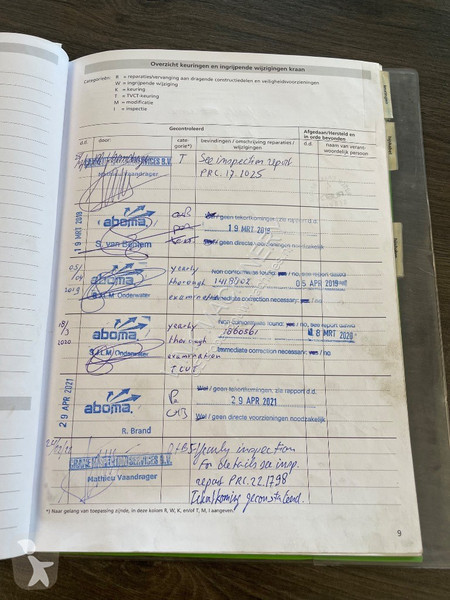 Overzicht keuringen en ingrijpende wijzigingen kraan
Categorieën: R = reparaties/vervanging aan dragende constructiedelen en veiligheidsvoorzieningen
W = ingrijpende wijziging
K = keuring
T = TVCT-keuring
M = modificatie
I = inspectie
Gecontroleerd
Afgedaan/Hersteld en in orde bevonden
d.d. door: cate-gorie*) bevindingen / omschrijving reparaties / wijzigingen d.d. naam van verant-woordelijk persoon
T See inspection report
Mathieu Vaandrager PRC.17.1025
19 MRT 2019 aboma / geen tekortkomingen, zie rapport d.d.
19 MRT 2019
S. van Barlem / geen directe voorzieningen noodzakelijk
05/04 2019 aboma yearly Non comformities found: yes / no, see report dated
thorough 1418/02 05 APR 2019
S.J.M. Onderwater examination Immediate correction necessary: yes / no
18/3 2020 aboma yearly Non comformities found: yes / no, see report dated
thorough 1860861 18 MRT 2020
S.J.M. Onderwater examination Immediate correction necessary: yes / no
TCVT
29 APR 2021 aboma Wel / geen tekortkomingen, zie rapport d.d.
29 APR 2021
R. Brand Wel / geen directe voorzieningen noodzakelijk
Yearly inspection
For details see insp.
Mathieu Vaandrager report PRC.22.1798
Tekortkoming geconstateerd.
*) Naar gelang van toepassing zijnde, in deze kolom R, W, K, en/of T, M, I aangeven.
9